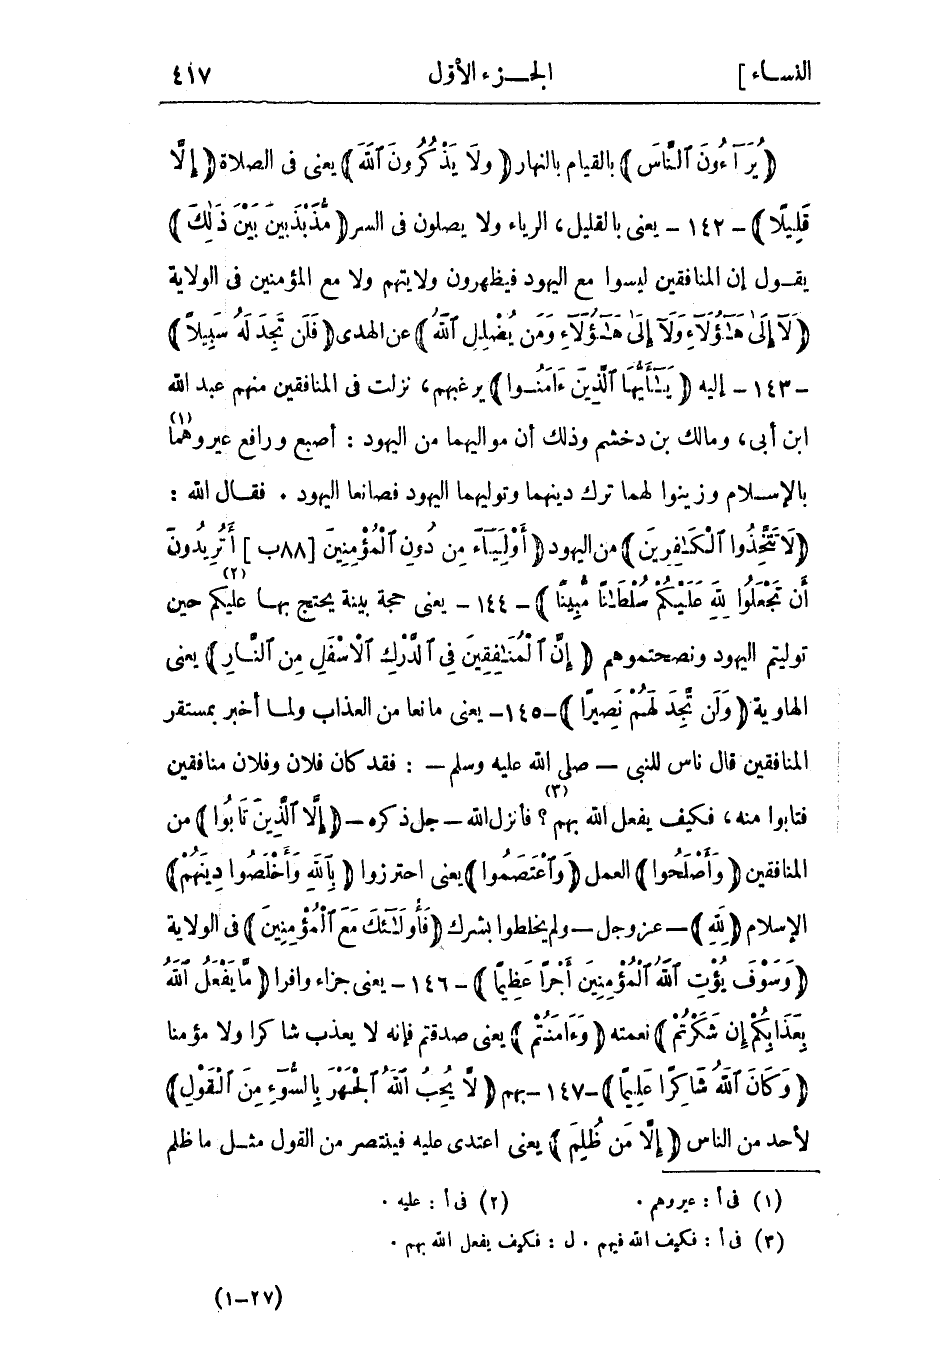 النساء ] الجـزء الأول ٤١٧
﴿ يُرَآءُونَ ٱلنَّاسَ ﴾ بالقيام بالنهار ﴿ ولَا يَذْكُرُونَ ٱللَّهَ ﴾ يعنى فى الصلاة ﴿ إِلَّا
قَلِيلًا ﴾ - ١٤٢ - يعنى بالقليل ، الرياء ولا يصلون فى السر ﴿ مُّذَبْذَبِينَ بَيْنَ ذَٰلِكَ ﴾
يقـول إن المنافقين ليسوا مع اليهود فيظهرون ولايتهم ولا مع المؤمنين فى الولاية
﴿ لَآ إِلَىٰ هَـٰٓؤُلَاءِ وَلَآ إِلَىٰ هَـٰٓؤُلَآءِ وَمَن يُضْلِلِ ٱللَّهُ ﴾ عن الهدى ﴿ فَلَن تَجِدَ لَهُ سَبِيلاً ﴾
- ١٤٣ - إليه ﴿ يَـٰٓأَيُّهَا ٱلَّذِينَ ءَامَنُـوا ﴾ يرغبهم ، نزلت فى المنافقين منهم عبد الله
ابن أبى ، ومالك بن دخشم وذلك أن مواليهما من اليهود : أصبع ورافع عيروهما (١)
بالإسـلام وزينوا لهما ترك دينهما وتوليهما اليهود فصانعا اليهود . فقـال الله :
﴿ لَا تَتَّخِذُوا ٱلْكَـٰفِرِينَ ﴾ من اليهود ﴿ أَوْلِيَـآءَ مِن دُونِ ٱلْمُؤْمِنِينَ [ ٨٨ب ] أَتُرِيدُونَ
أَن تَجْعَلُوا لِلَّهِ عَلَيْكُمْ سُلْطَـٰنًا مُّبِينًا ﴾ - ١٤٤ - يعنى حجة بينة يحتج بهـا عليكم (٢) حين
توليتم اليهود ونصحتموهم ﴿ إِنَّ ٱلْمُنَـٰفِقِينَ فِى ٱلدَّرْكِ ٱلْأَسْفَلِ مِنَ ٱلنَّارِ ﴾ يعنى
الهاوية ﴿ وَلَن تَجِدَ لَهُمْ نَصِيرًا ﴾ - ١٤٥ - يعنى مانعا من العذاب ولمـا أخبر بمستقر
المنافقين قال ناس للنبى — صلى الله عليه وسلم — : فقد كان فلان وفلان منافقين
فتابوا منه ، فكيف يفعل الله بهم (٣) ؟ فأنزل الله — جل ذكره — ﴿ إِلَّا ٱلَّذِينَ تَابُوا ﴾ من
المنافقين ﴿ وَأَصْلَحُوا ﴾ العمل ﴿ وَٱعْتَصَمُوا ﴾ يعنى احترزوا ﴿ بِٱللَّهِ وَأَخْلَصُوا دِينَهُمْ ﴾
الإسلام ﴿ لِلَّهِ ﴾ — عز وجل — ولم يخلطوا بشرك ﴿ فَأُولَـٰٓئِكَ مَعَ ٱلْمُؤْمِنِينَ ﴾ فى الولاية
﴿ وَسَوْفَ يُؤْتِ ٱللَّهُ ٱلْمُؤْمِنِينَ أَجْرًا عَظِيمًا ﴾ - ١٤٦ - يعنى جزاء وافرا ﴿ مَّا يَفْعَلُ ٱللَّهُ
بِعَذَابِكُمْ إِن شَكَرْتُمْ ﴾ نعمته ﴿ وَءَامَنتُمْ ﴾ يعنى صدقتم فإنه لا يعذب شاكرا ولا مؤمنا
﴿ وَكَانَ ٱللَّهُ شَاكِرًا عَلِيمًا ﴾ - ١٤٧ - بهم ﴿ لَّا يُحِبُّ ٱللَّهُ ٱلْجَهْرَ بِٱلسُّوٓءِ مِنَ ٱلْقَوْلِ ﴾
لأحد من الناس ﴿ إِلَّا مَن ظُلِمَ ﴾ يعنى اعتدى عليه فينتصر من القول مثـل ما ظلم
(١) فى أ : عيروهم . (٢) فى أ : عليه .
(٣) فى أ : فكيف الله فيهم . ل : فكيف يفعل الله بهم .
(٢٧-١)